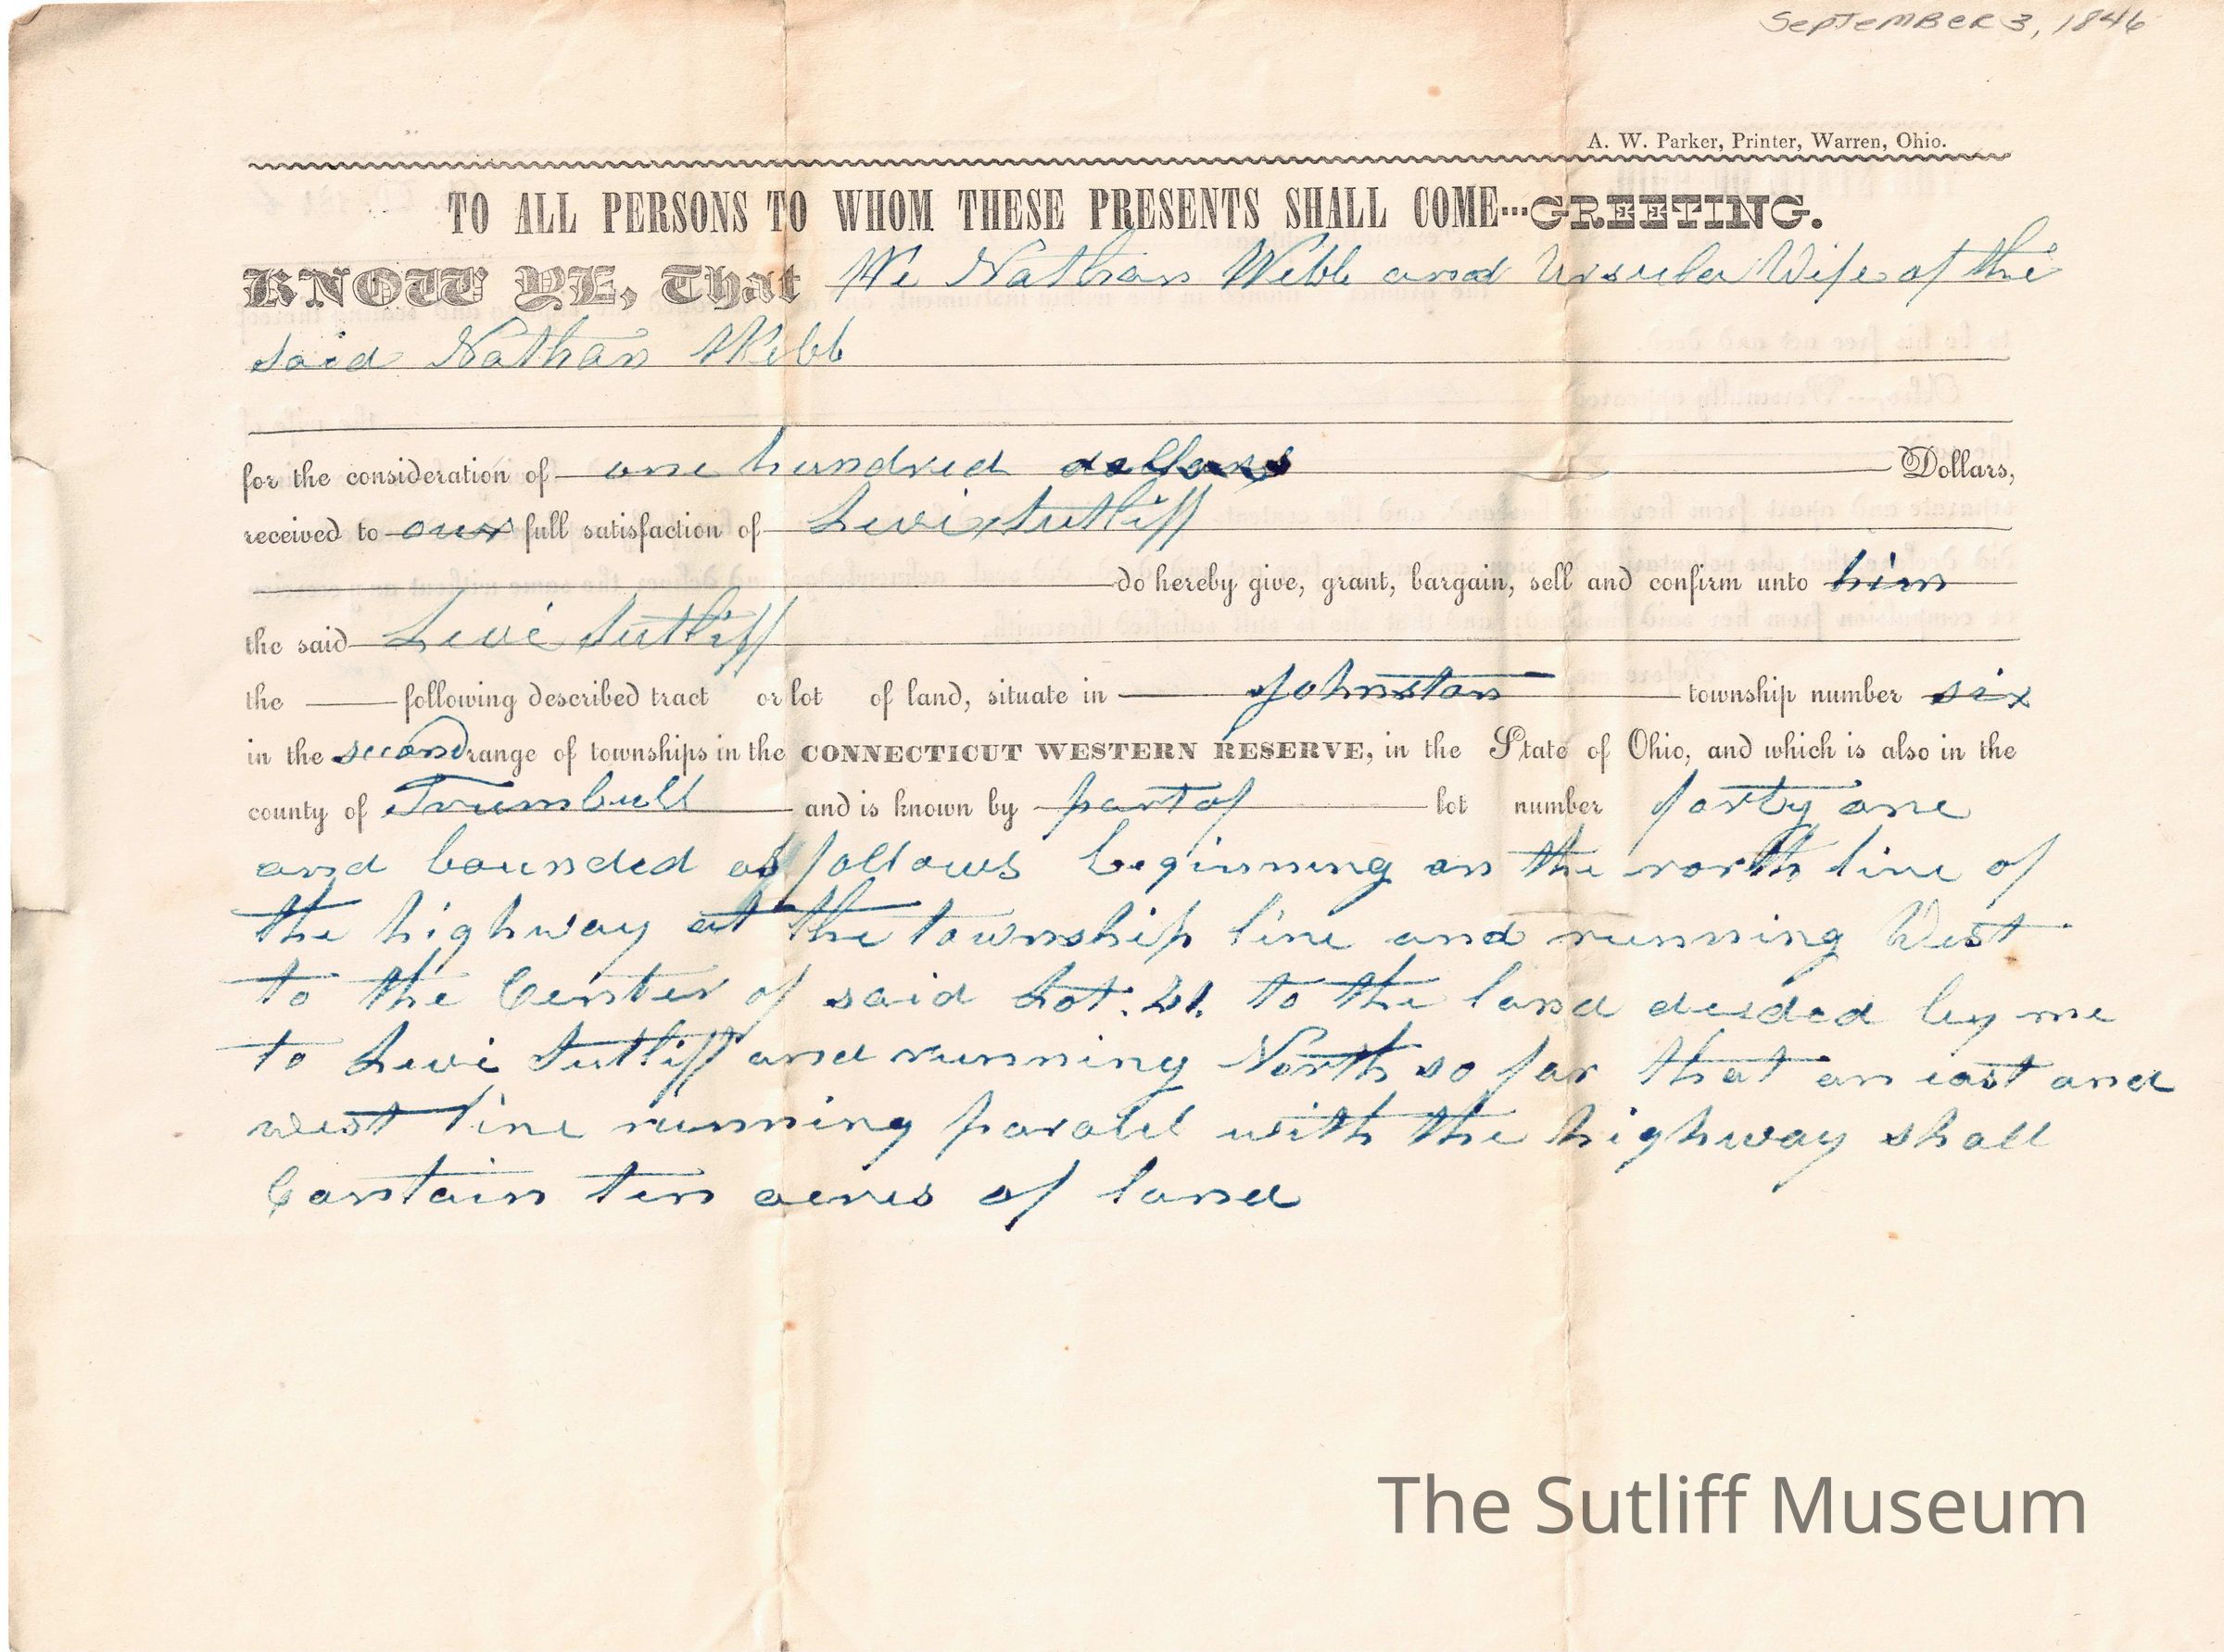 September 3, 1846
A. W. Parker, Printer, Warren, Ohio.
TO ALL PERSONS TO WHOM THESE PRESENTS SHALL COME---GREETING.
KNOW YE, That We Nathan Webb and Ursula Wife of the
said Nathan Webb
for the consideration of one hundred dollars Dollars,
received to our full satisfaction of Levi Sutliff
do hereby give, grant, bargain, sell and confirm unto him
the said Levi Sutliff
the following described tract or lot of land, situate in Johnston township number six
in the second range of townships in the CONNECTICUT WESTERN RESERVE, in the State of Ohio, and which is also in the
county of Trumbull and is known by part of lot number forty one
and bounded as follows beginning on the north line of
the highway at the township line and running West
to the Center of said Lot. 41. to the land deeded by me
to Levi Sutliff and running North so far that an east and
west line running paralel with the highway shall
Contain ten acres of land
The Sutliff Museum